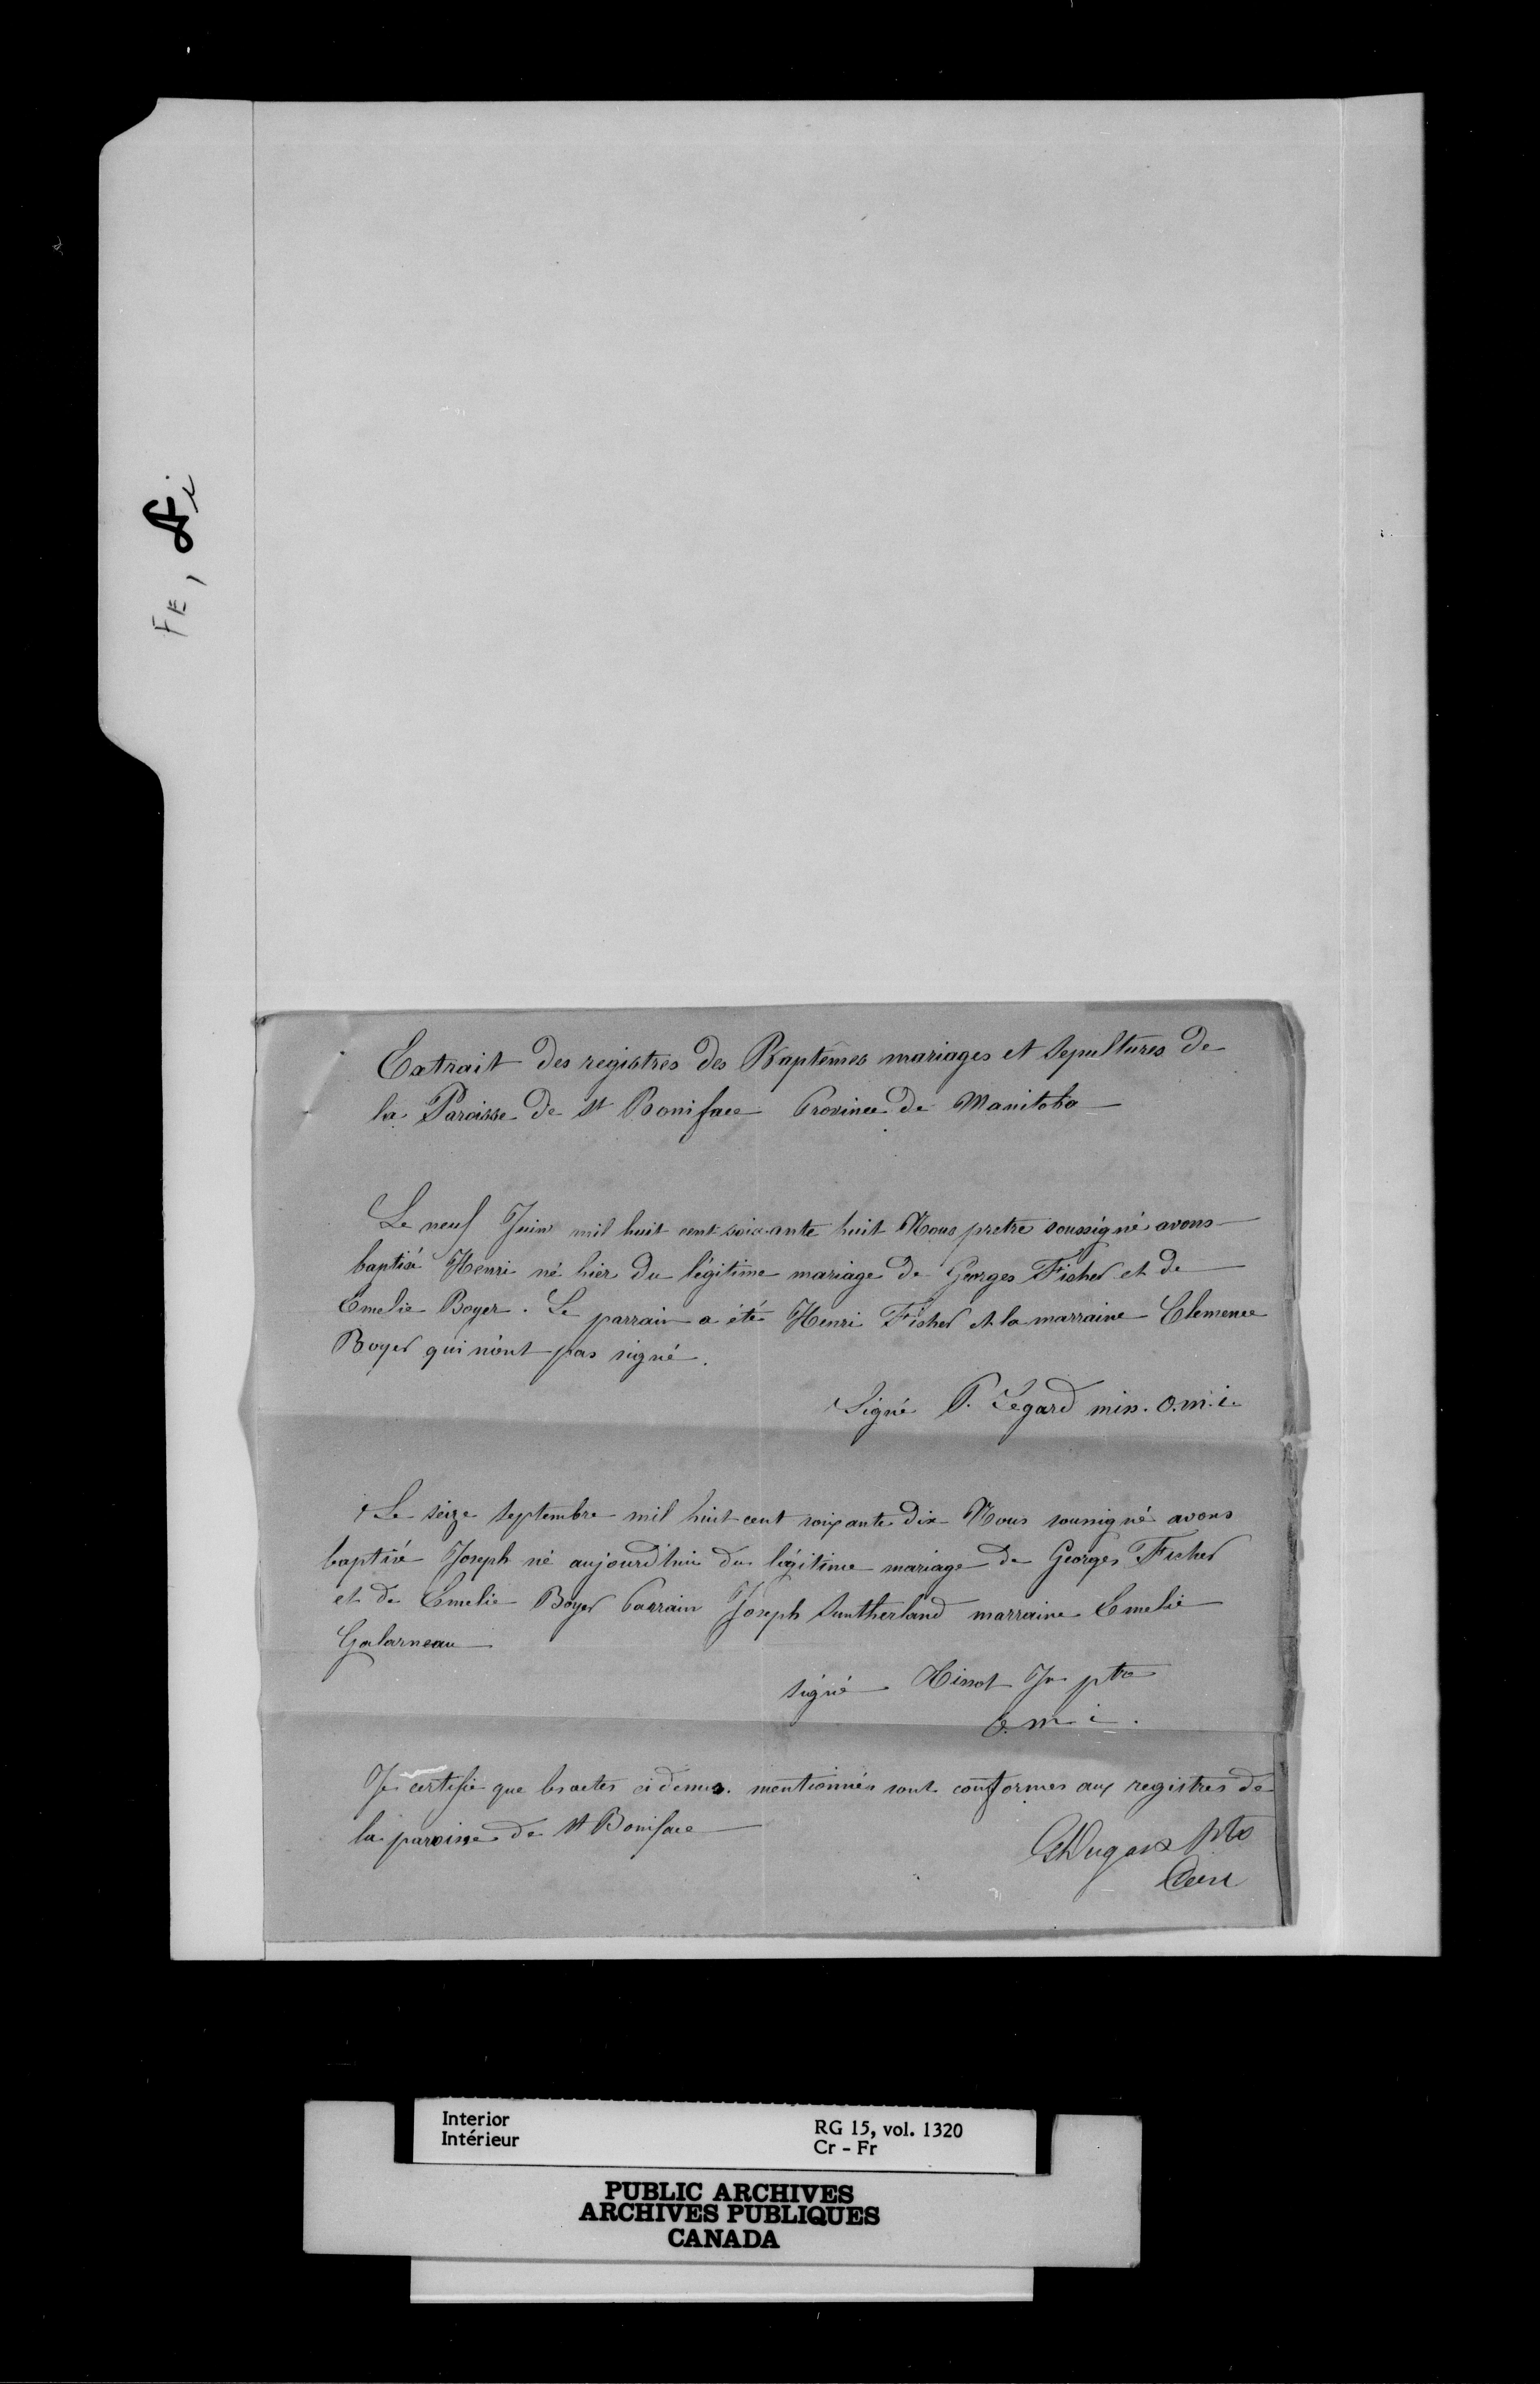 FE, Fi
Extrait des registres des Baptêmes mariages et sepultures de
la Paroisse de St Boniface Province de Manitoba
Le neuf Juin mil huit cent soixante huit Nous pretre soussigné avons
baptisé Henri né hier du légitime mariage de Georges Fisher et de
Emelie Boyer. Le parrain a été Henri Fisher et la marraine Clemence
Boyer qui n'ont pas signé.
Signé P. Légard min. o.m.i.
Le seize septembre mil huit cent soixante dix Nous soussigné avons
baptisé Joseph né aujourd'hui du légitime mariage de Georges Ficher
et de Emelie Boyer Parrain Joseph Sutherland marraine Emelie
Galarneau
signé Jr ptre
o. m. i.
Je certifie que les actes ci dessus mentionnés sont conformes aux registres de
la paroisse de St Boniface
G Dugas Ptre
Curé
Interior
Intérieur
RG 15, vol. 1320
Cr - Fr
PUBLIC ARCHIVES
ARCHIVES PUBLIQUES
CANADA